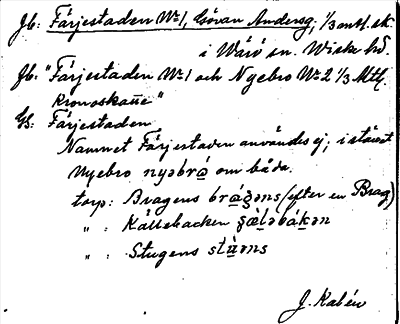 Jb: Färjestaden Nr1, Göran Andersg, 1/3 mtl. sk
i Wårö sn. Wiske hd.
Jb: "Färjestaden Nr 1 och Nyebro Nr 2 1/3 Mtl.
Kronoskatte"
Gs: Färjestaden
Namnet Färjestaden användes ej; i stället
Nyebro nyəbrǫ́ om båda.
torp: Bragens brágəns (efter en Brag)
" : Källebacken
" : Stugens stúəns
J. Kalén